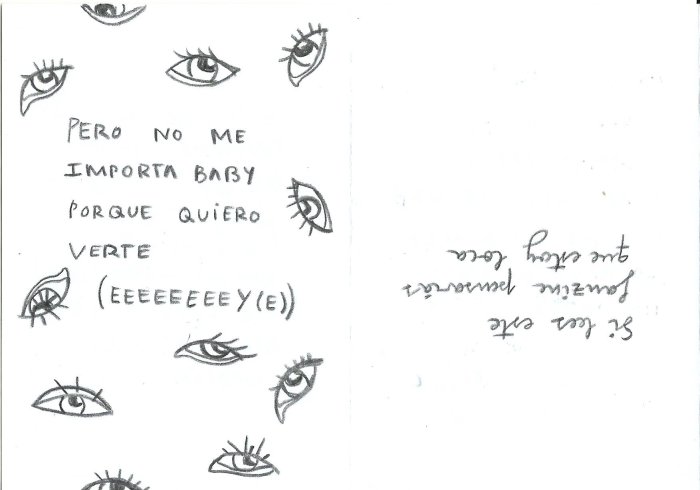 PERO NO ME
IMPORTA BABY
PORQUE QUIERO
VERTE
(EEEEEEEEY(E))
Si lees este
fanzine pensarás
que estoy loca